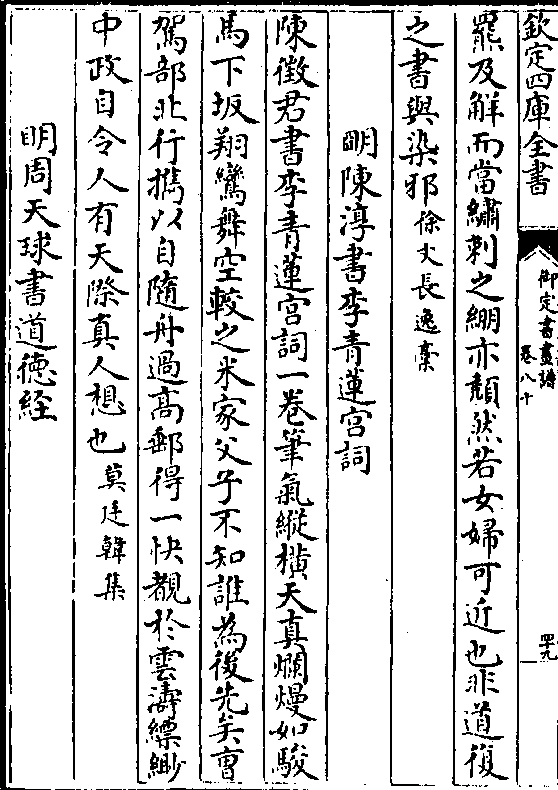 欽定四庫全書
御定書畫譜
卷八十
四九
羆及解而當繡刺之綳亦頽然若女婦可近也非道復
之書與染邪徐文長逸藁
明陳淳書李青蓮宫詞
陳徵君書李青蓮宫詞一卷筆氣縱横天真爛熳如駿
馬下坂翔鸞舞空較之米家父子不知誰為後先矣曹
駕部北行攜以自隨舟過高郵得一快覩於雲濤縹緲
中政自令人有天際真人想也莫廷韓集
明周天球書道德經